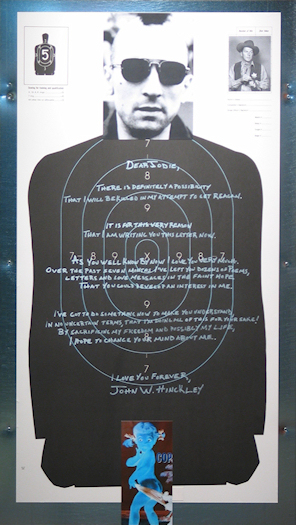 5
7
DEAR JODIE,
8
THERE IS DEFINITELY A POSSIBILITY
THAT I WILL BE KILLED IN MY ATTEMPT TO GET REAGAN.
9
IT IS FOR THIS VERY REASON
THAT I AM WRITING YOU THIS LETTER NOW.
7 8 9 9 8 7
AS YOU WELL KNOW BY NOW I LOVE YOU VERY MUCH.
OVER THE PAST SEVEN MONTHS I'VE LEFT YOU DOZENS OF POEMS,
LETTERS AND LOVE MESSAGES IN THE FAINT HOPE
THAT YOU COULD DEVELOP AN INTEREST IN ME.
9
I'VE GOT TO DO SOMETHING NOW TO MAKE YOU UNDERSTAND,
IN NO UNCERTAIN TERMS, THAT I'M DOING ALL OF THIS FOR YOUR SAKE!
BY SACRIFICING MY FREEDOM AND POSSIBLY MY LIFE,
8
I HOPE TO CHANGE YOUR MIND ABOUT ME.
7
I LOVE YOU FOREVER,
JOHN W. HINCKLEY